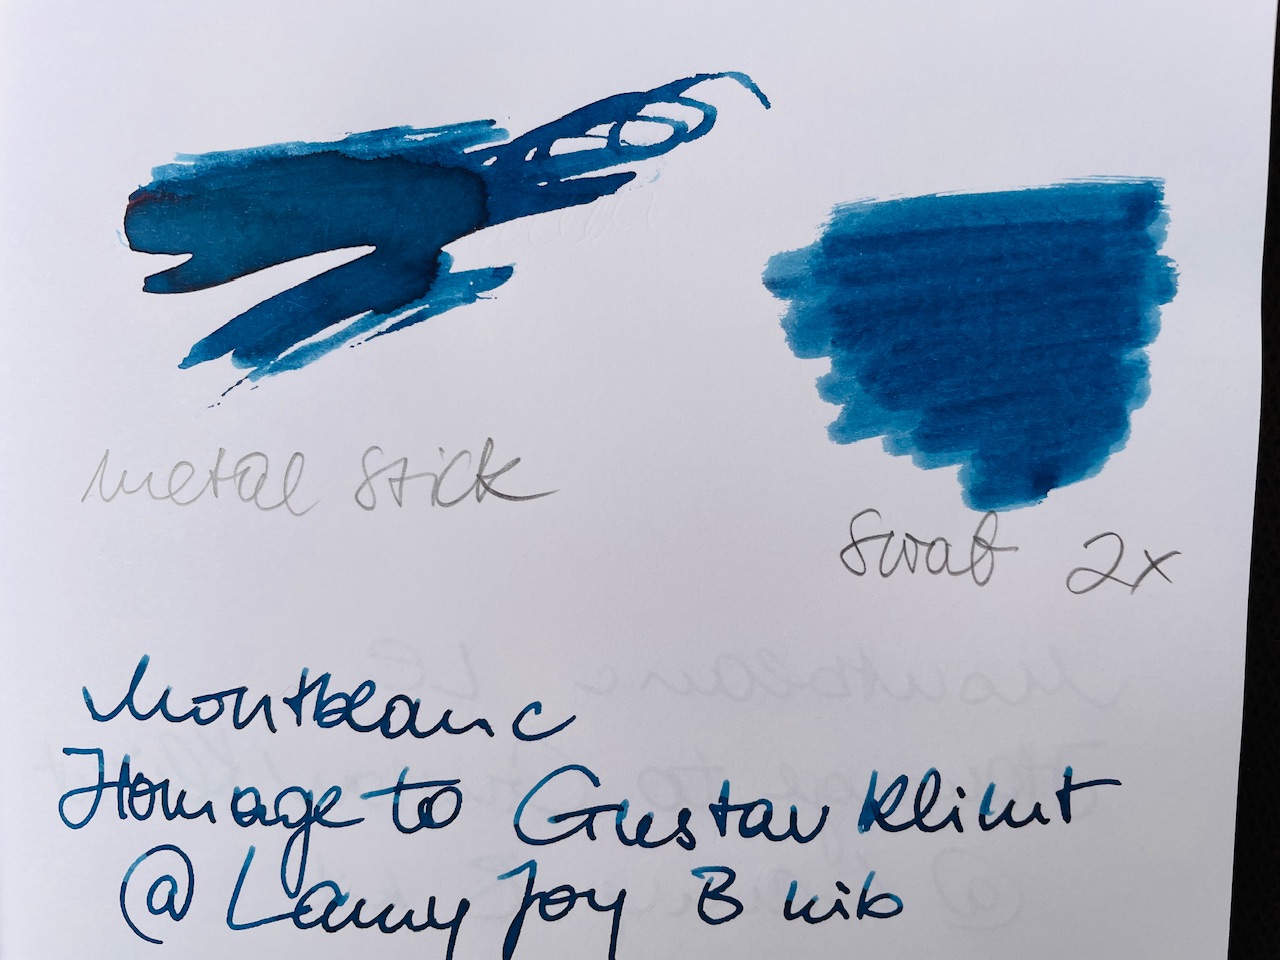 metal stick
swab 2x
Montblanc
Homage to Gustav Klimt
@ Lamy Joy B nib